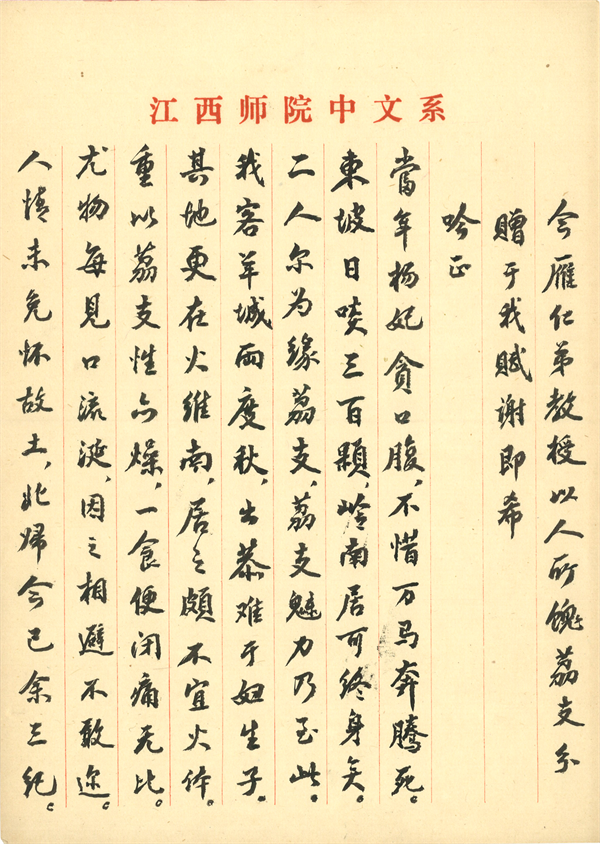 江西师院中文系
今雁仁弟教授以人所餽荔支分
贈于我賦謝即希
吟正
當年杨妃貪口腹,不惜万马奔騰死。
東坡日啖三百顆,岭南居可终身矣。
二人尔为缘荔支,荔支魅力乃至此。
我客羊城两度秋,出恭难于妇生子。
其地更在火维南,居之颇不宜火体。
重以荔支性亦燥,一食便闭痛无比。
尤物每見口流涎,因之相避不敢迩。
人情未免怀故土,北歸今已余三纪。